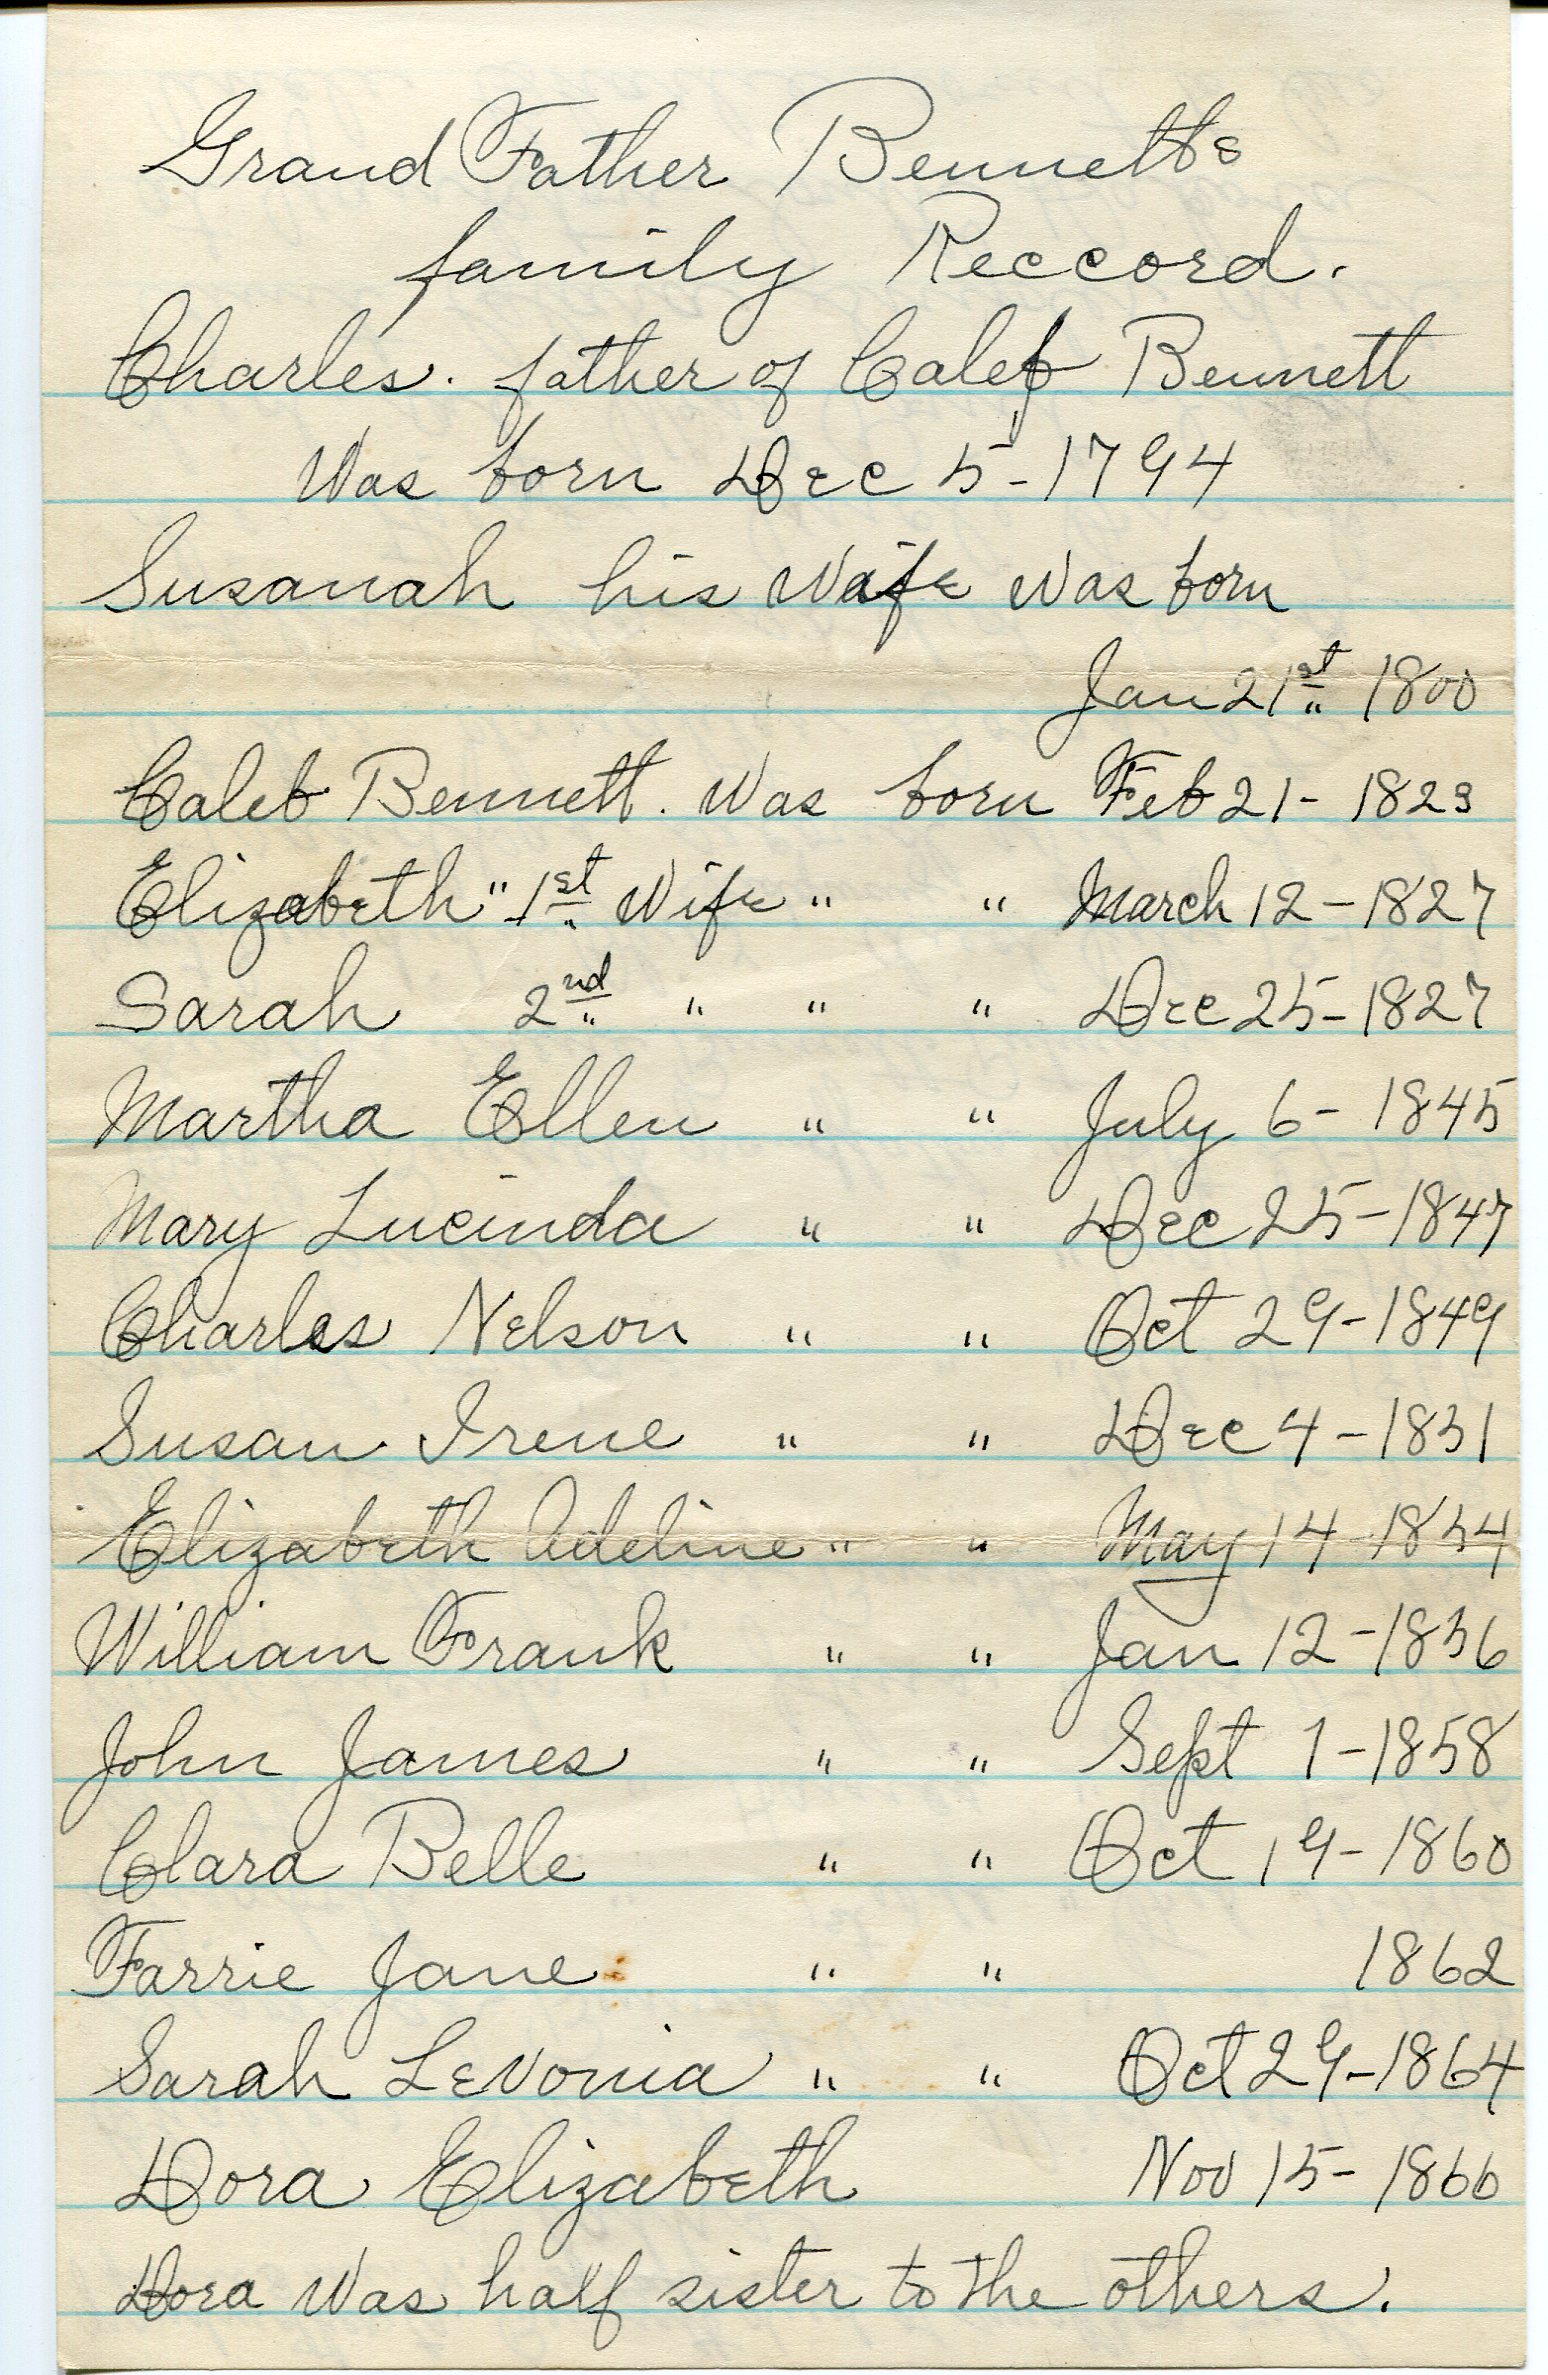 Grand Father Bennetts
family Reccord.
Charles. father of Caleb Bennett
Was born Dec 5-1794
Susanah his Wife Was born
Jan 21st 1800
Caleb Bennett. Was born Feb 21-1823
Elizabeth " 1st Wife " " March 12-1827
Sarah 2nd " " " Dec 25-1827
Martha Ellen " " July 6-1845
Mary Lucinda " " Dec 25-1847
Charles Nelson " " Oct 29-1849
Susan Irene " " Dec 4-1851
Elizabeth Adeline " " May 14-1854
William Frank " " Jan 12-1856
John James " " Sept 1-1858
Clara Belle " " Oct 19-1860
Farrie Jane " " 1862
Sarah LeVonia " " Oct 29-1864
Dora Elizabeth Nov 15-1866
Dora Was half sister to the others.